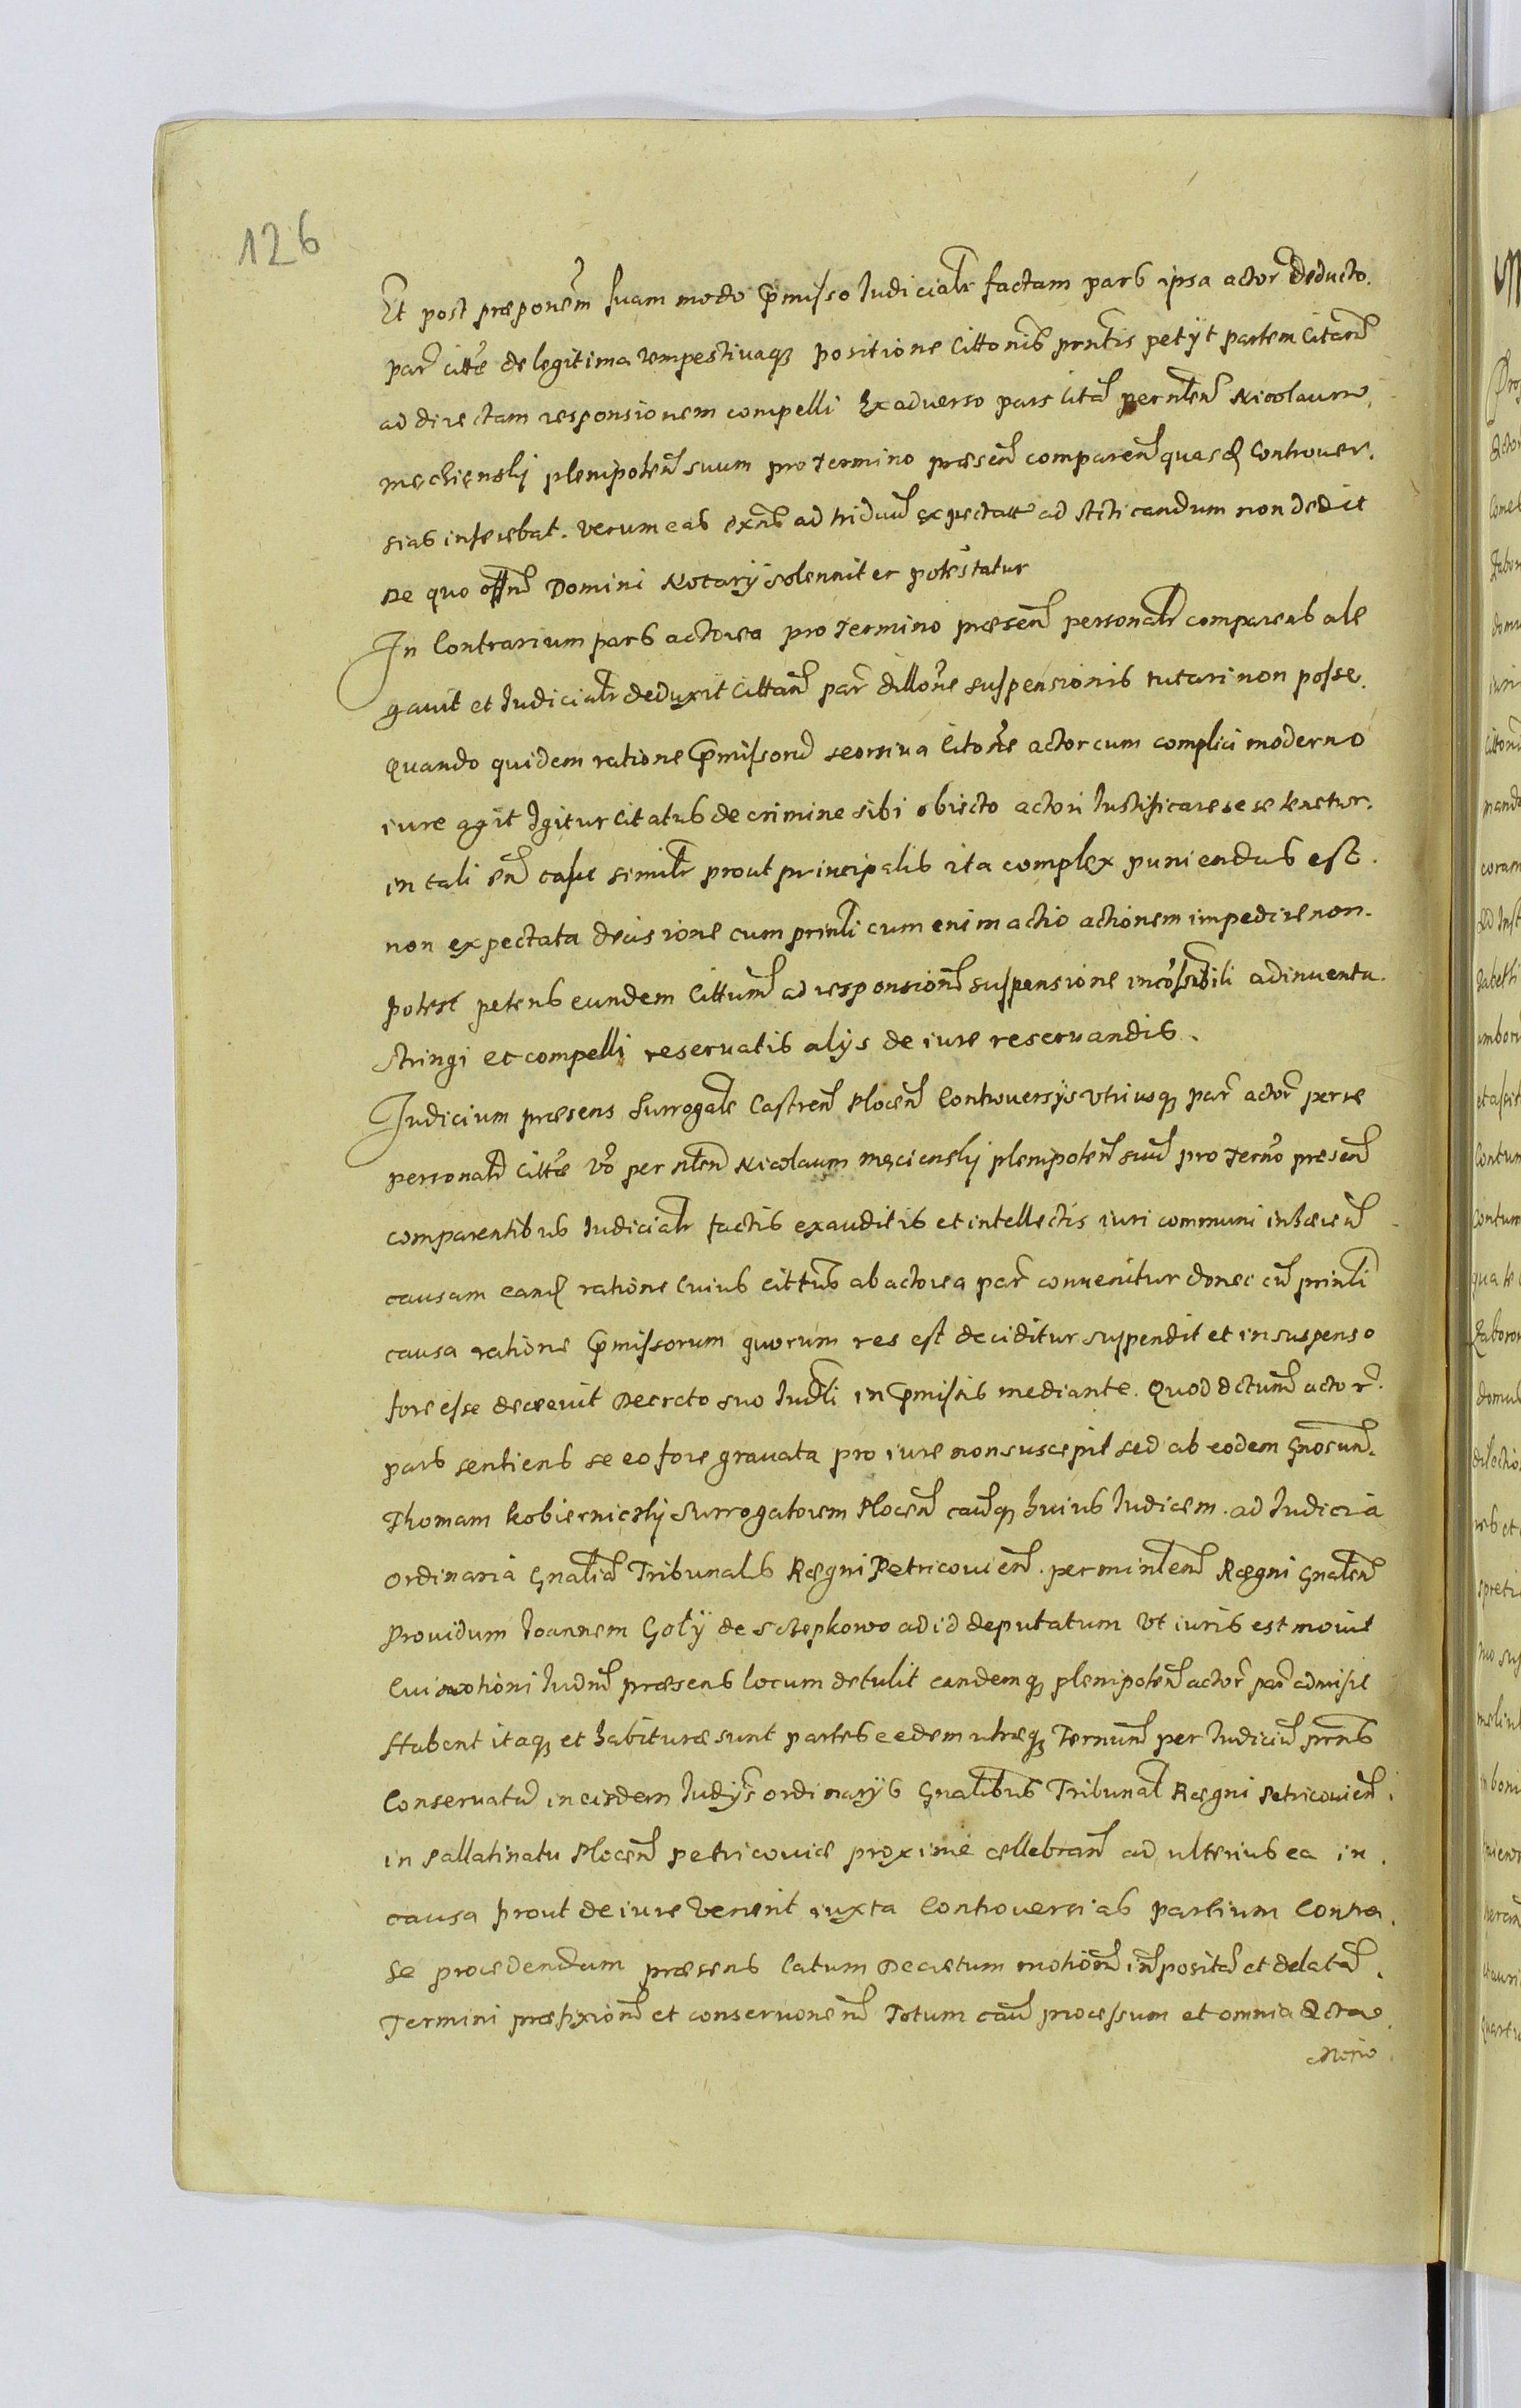 126
Et post præponem̃ suam modo p̃misso Iudicialr̃ factam pars ipsa actor̃ deducto.
par̃ cittã de legitima tempestiuaq̃ positione Cittonis prñtis petÿt partem Citatm̃
ad directam responsionem compelli Ex aduerso pars Cita per nlem̃ Nicolaum
mechienskj plenipotem̃ suum pro termino præseñ compareñ quasd̃ Controuer.
sias inferebat. verum eas exñs ad triduum̃ expectatt ad stiti candum non dedit
De quo offm̃ Domini Notarÿ solenniter potestatur
In Contrarium pars actorea pro termino præseñ personalr̃ comparens ale
gauit et Iudicialr̃ deduxit Cittam̃ par̃ dillone suspensionis tutari non posse.
quando quidem ratione p̃missorum̃ seorsiua Citone actor cum complici moderno
iure agit Igitur Citatus de crimine sibi obiecto actori Iustificare se se tenetur.
in tali eñ casu similr̃ prout principalis ita complex puniendus est.
non expectata decisione cum prinli cum enim actio actionem impedire non.
potest petens eundem Cittum̃ ad responsionem̃ suspensione adinuenta.
stringi et compelli reseruatis alÿs de iure reseruandis.
Iudicium præsens Surrogale Castreñ Ploceñ Controuersÿs vtriusq̃ par̃ actor̃ per se
personalr̃ Cittæ vo per nlem̃ Nicolaum męcienskj plenipoteñ suum̃ pro termo præseñ
comparentibus Iudicialr̃ factis exauditis et intellectis iuri communi inhæreñ
causam eand̃ ratione Cuius Cittus ab actorea par̃ conuenitur donec cum̃ prinli
causa ratione p̃missorum quorum res est deciditur suspendit et in suspenso
fore esse decreuit Decreto suo Iudli in p̃missis mediante. Quod dctum̃ actor̃.
pars sentiens se eo fore grauata pro iure non suscepit sed ab eodem Gnosum̃.
Thomam kobiernickj Surrogatorem Ploceñ cauq̃ huius Iudicem. ad Iudicia
ordinaria Gnalia Tribunals Rægni Petricouieñ. per minlem̃ Rægni Gnalem̃
prouidum Ioannem Goły de Sczepkowo ad id deputatum vt iuris est mouit
Cui motioni Iudm̃ præsens locum detulit eandemq̃ plenipoteñ actor̃ par̃ admisit
Habent itaq̃ et habituræ sunt partes eedem utræq̃ Ternum̃ per Iudicium̃ prns
Conseruatum̃ in eisdem Iudÿs ordinarÿs Gnalibus Tribunal Rægni Petricouieñ.
in Pallatinatu Ploceñ Petricouiæ proxime cellebrañ ad ulterius ea in.
causa prout de iure Venerit iuxta Controuersias partium Contra.
se procedendum præsens latum Decretum motionem̃ interpositam̃ et delatam̃.
Termini præfixionem̃ et conseruonem̃ Totum cau processum et omnia Acta.
Motio